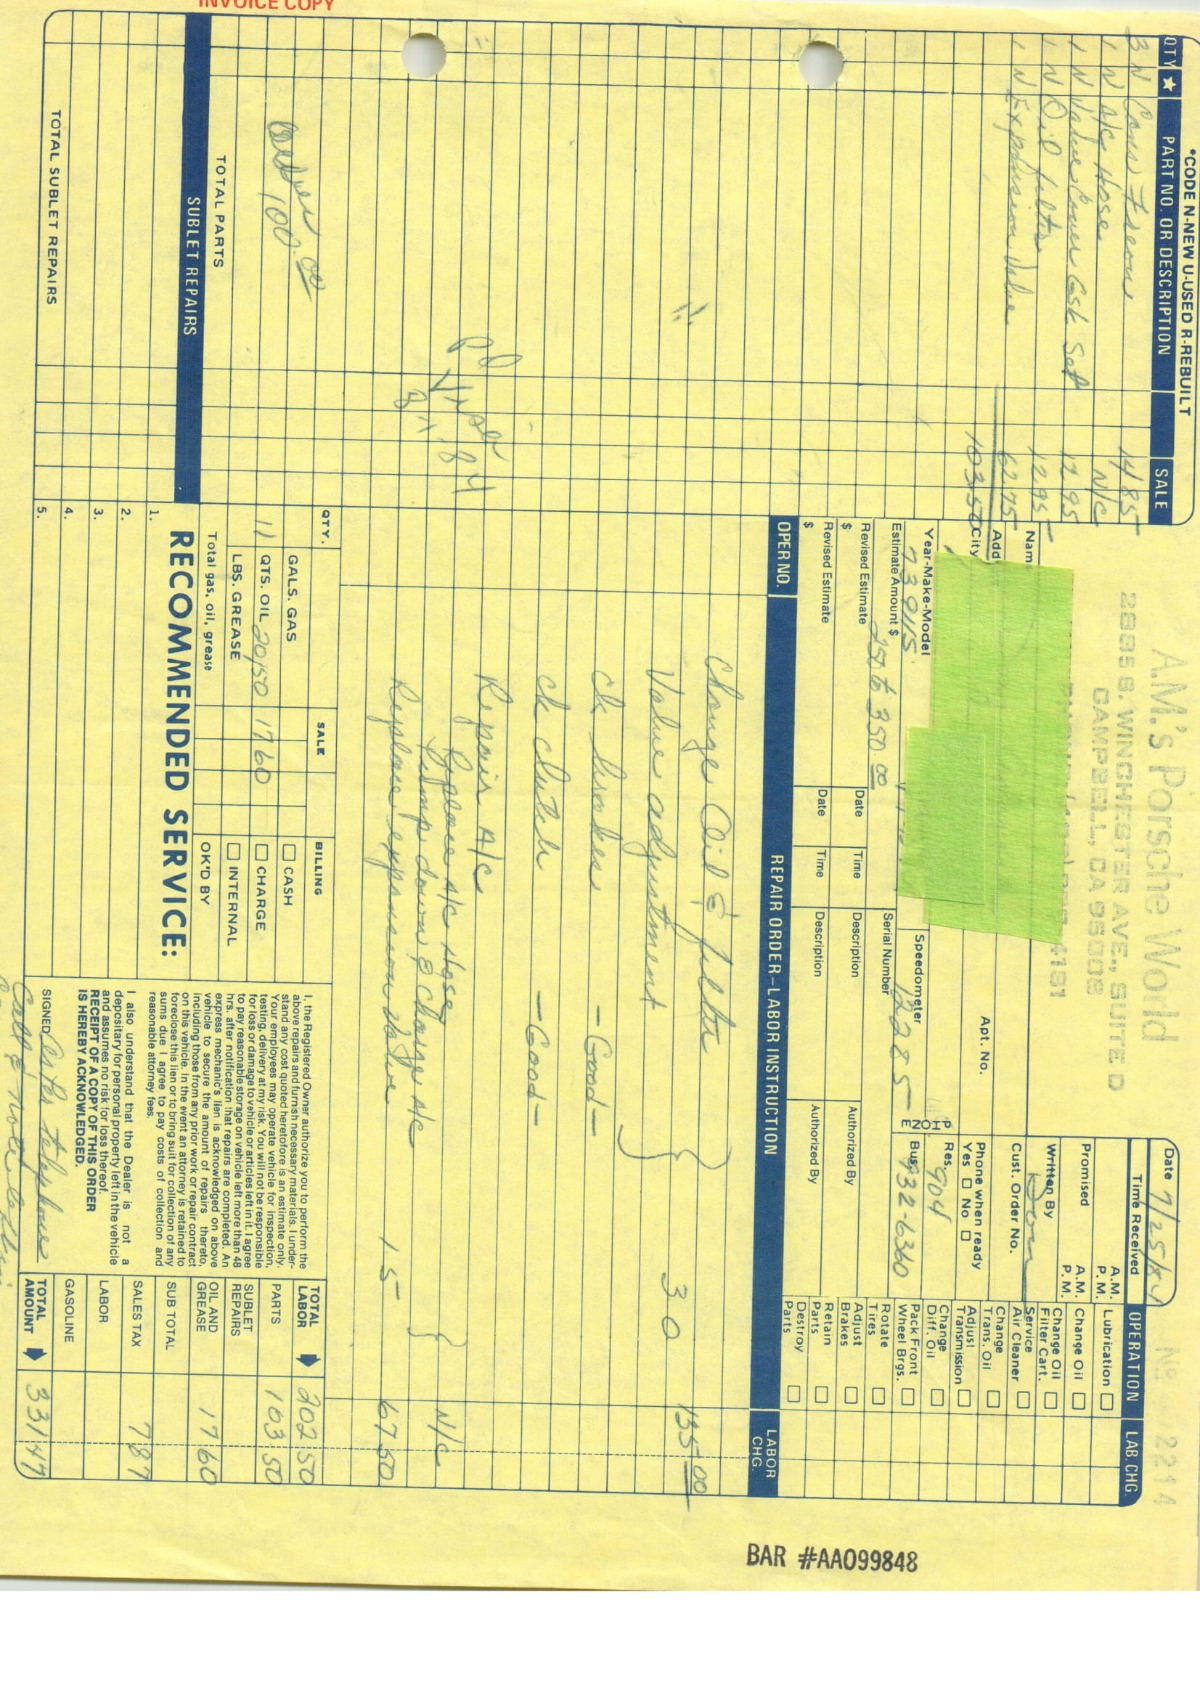 INVOICE COPY
*CODE N-NEW U-USED R-REBUILT
QTY ★ PART NO. OR DESCRIPTION SALE
3 N Cans Freon 14 85
1 N A/C Hose N/C
1 N Valve Cover Gsk Set 12 95
1 N Oil filter 12 95
1 N Expansion Valve 62 75
103 50
pd
Visa
8 11 84
100.00
TOTAL PARTS
SUBLET REPAIRS
TOTAL SUBLET REPAIRS
A.M.'s Porsche World
2885 S. WINCHESTER AVE., SUITE D
CAMPBELL, CA 95008
4181
Nº 2214
Date 7/25/84
Time Received A.M. P.M.
Promised A.M. P.M.
Written By
Cust. Order No.
Phone when ready
Yes ☐ No ☐
Nam
Add
City
Apt. No.
PHONE
Res. 904
Bus. 932-6360
Year-Make-Model
73 911S
Speedometer
12285
Estimate Amount $
250 to 350 00
Serial Number
Revised Estimate $ Date Time Description Authorized By
Revised Estimate $ Date Time Description Authorized By
OPERATION LAB. CHG.
Lubrication ☐
Change Oil ☐
Change Oil Filter Cart. ☐
Service Air Cleaner ☐
Change Trans. Oil ☐
Adjust Transmission ☐
Change Diff. Oil ☐
Pack Front Wheel Brgs. ☐
Rotate Tires ☐
Adjust Brakes ☐
Retain Parts ☐
Destroy Parts ☐
OPER NO. REPAIR ORDER-LABOR INSTRUCTION LABOR CHG.
Change Oil & filter
Valve adjustment 3 0 135 00
Ck brakes —Good—
Ck clutch —Good—
Repair A/C
Replace A/C Hose
Pump down & Charge A/C N/C
Replace expansion valve 1-5 67 50
QTY. SALE BILLING
GALS. GAS ☐ CASH
11 QTS. OIL 20/50 17 60 ☐ CHARGE
LBS. GREASE ☐ INTERNAL
Total gas, oil, grease OK'D BY
RECOMMENDED SERVICE:
1.
2.
3.
4.
5.
I, the Registered Owner authorize you to perform the
above repairs and furnish necessary materials. I under-
stand any cost quoted heretofore is an estimate only.
Your employees may operate vehicle for inspection,
testing, delivery at my risk. You will not be responsible
for loss or damage to vehicle or articles left in it. I agree
to pay reasonable storage on vehicle left more than 48
hrs. after notification that repairs are completed. An
express mechanic's lien is acknowledged on above
vehicle to secure the amount of repairs thereto,
including those from any prior work or repair contract
on this vehicle. In the event an attorney is retained to
foreclose this lien or to bring suit for collection of any
sums due I agree to pay costs of collection and
reasonable attorney fees.
I also understand that the Dealer is not a
depositary for personal property left in the vehicle
and assumes no risk for loss thereof.
RECEIPT OF A COPY OF THIS ORDER
IS HEREBY ACKNOWLEDGED.
SIGNED telephone
Call &
TOTAL LABOR 202 50
PARTS 103 50
SUBLET REPAIRS
OIL AND GREASE 17 60
SUB TOTAL
SALES TAX 7 87
LABOR
GASOLINE
TOTAL AMOUNT 331 47
BAR #AA099848